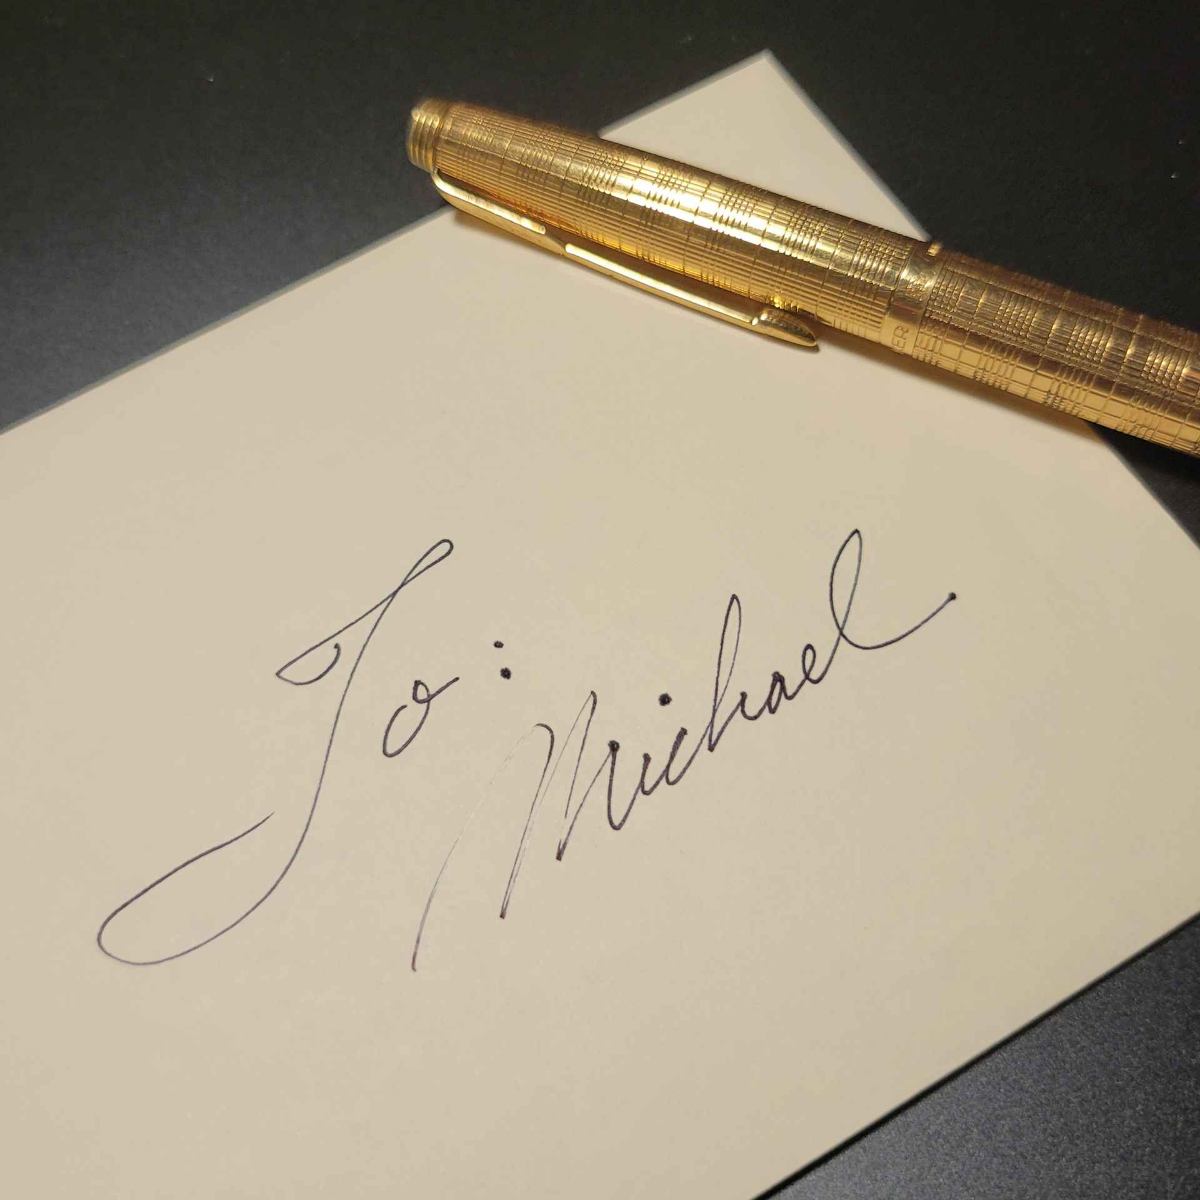 To:
Michael